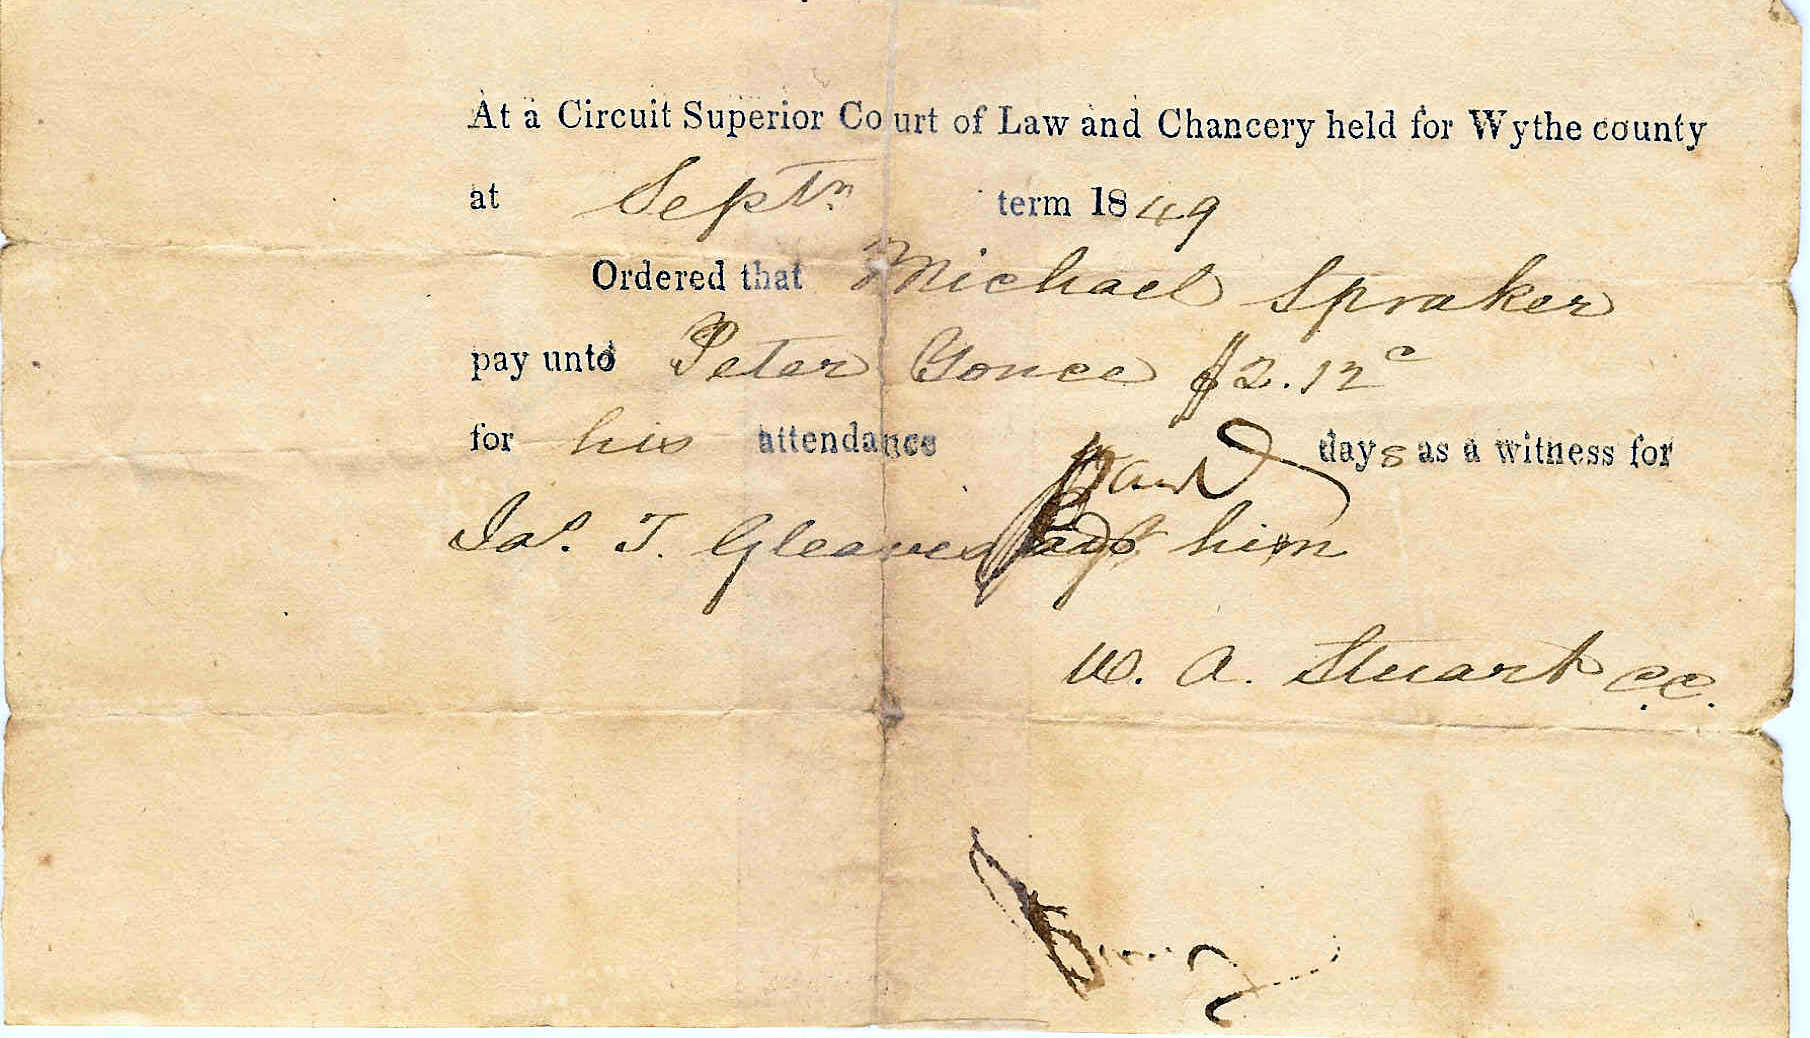 At a Circuit Superior Court of Law and Chancery held for Wythe county
at Septr term 1849
Ordered that Michael Spraker
pay unto Peter Gonce $2.12c
for his attendance days as a witness for
Paid
Jas. T. Gleaves agt him
W. A. Stuart C.C.